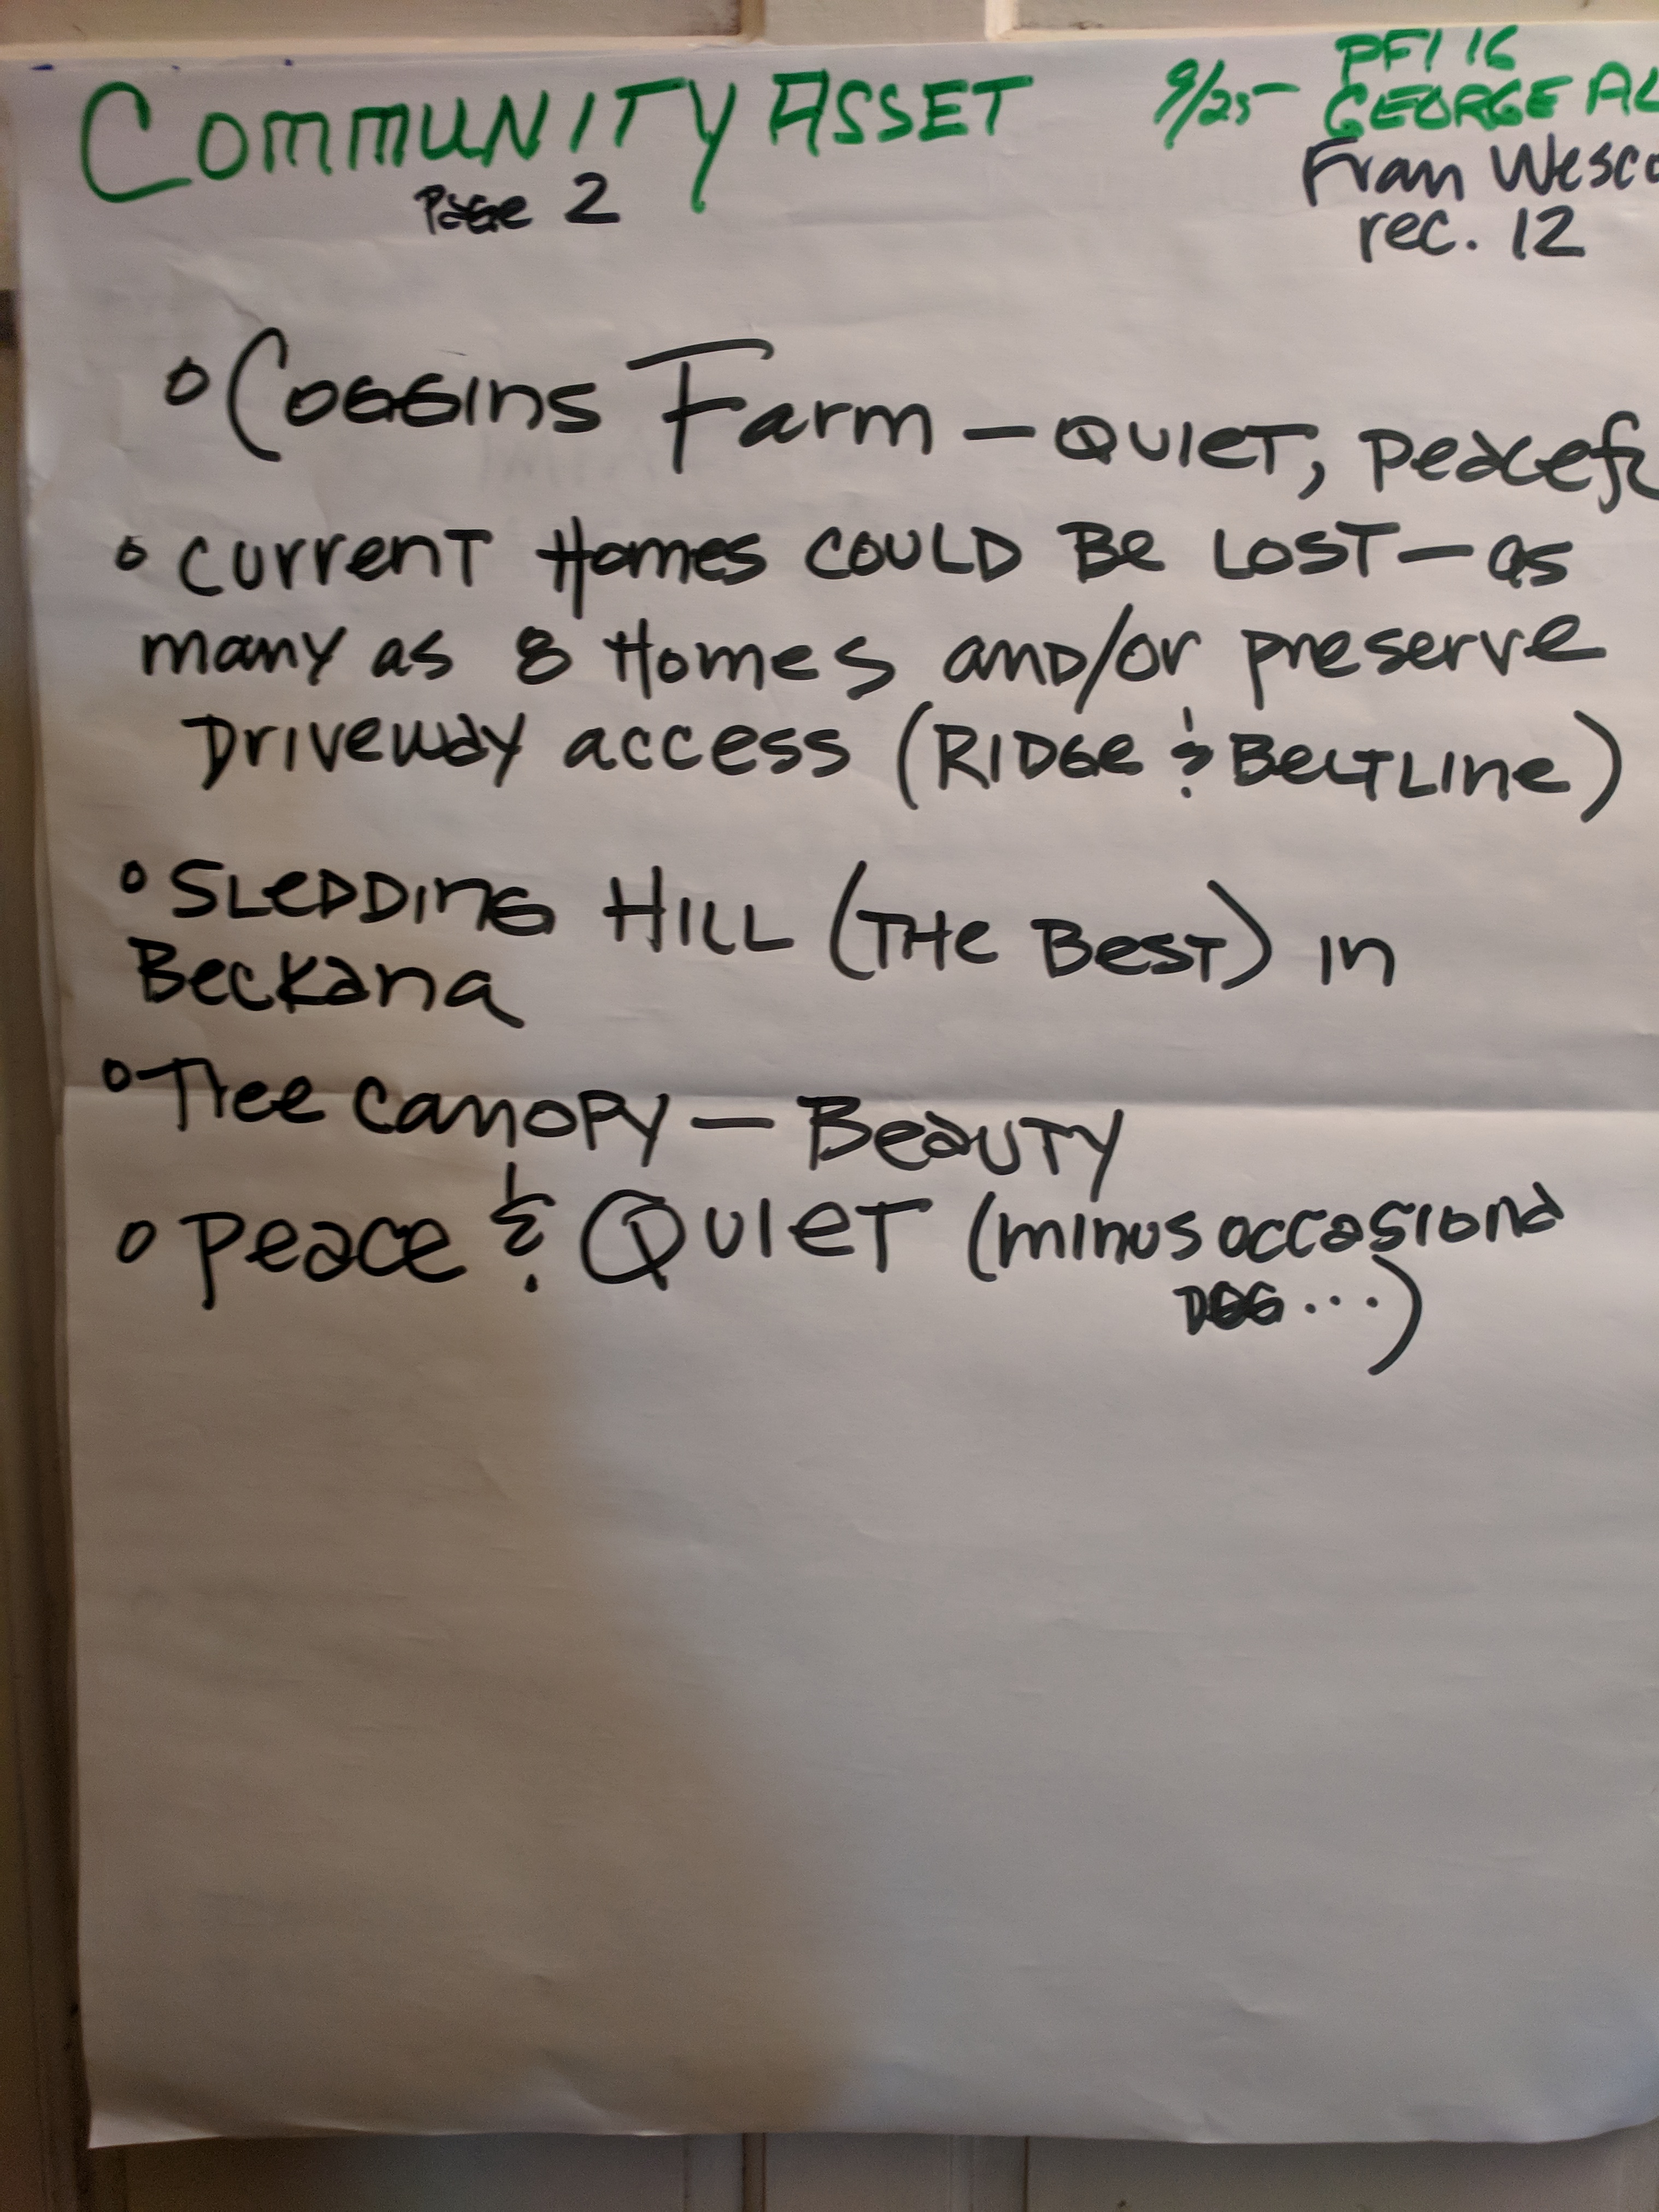 COMMUNITY ASSET 9/25 PF1 16
GEORGE AL
Page 2 Fran Wesco
rec. 12
o Coggins Farm — QUIET, peacefu
o current Homes COULD Be LOST — as
many as 8 Homes and/or preserve
Driveway access (RIDGe & BeLTLine)
o SLeDDinG HILL (THe BesT) in
Beckana
o Tree canopy — BeauTy
o peace & QuieT (minus occasional
DOG ...)